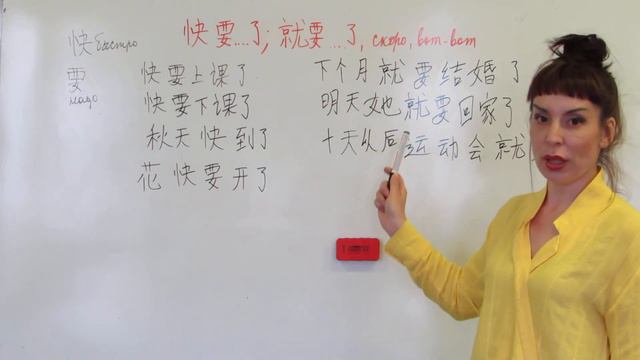 快要....了; 就要 ...了, скоро, вот-вот
快 быстро
要
надо
快要上课了
快要下课了
秋天快到了
花快要开了
下个月就要结婚了
明天她就要回家了
十天以后运动会就